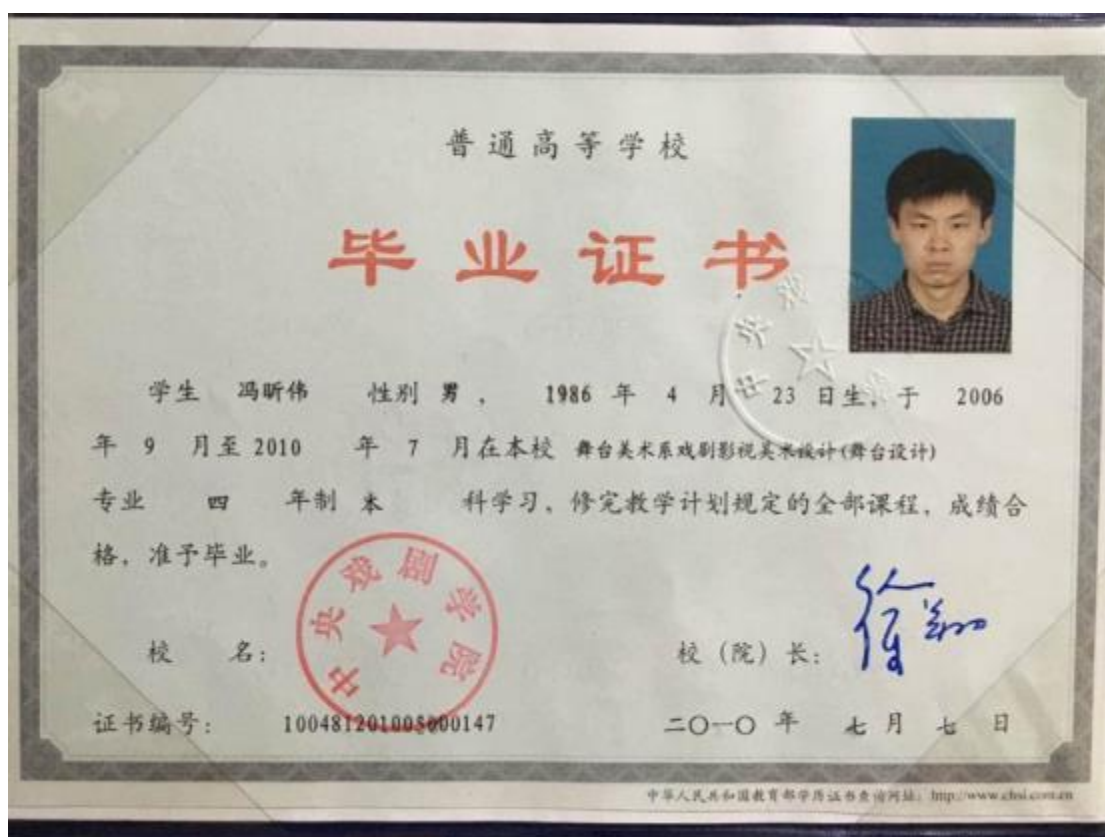 普通高等学校
毕业证书
学生 冯昕伟 性别 男 , 1986 年 4 月 23 日生,于 2006
年 9 月至 2010 年 7 月在本校 舞台美术系戏剧影视美术设计(舞台设计)
专业 四 年制 本 科学习,修完教学计划规定的全部课程,成绩合
格,准予毕业。
中央戏剧学院
中央戏
校 名: 校(院)长: 徐翔
证书编号: 100481201005000147 二〇一〇 年 七 月 七 日
中华人民共和国教育部学历证书查询网址: http://www.chsi.com.cn